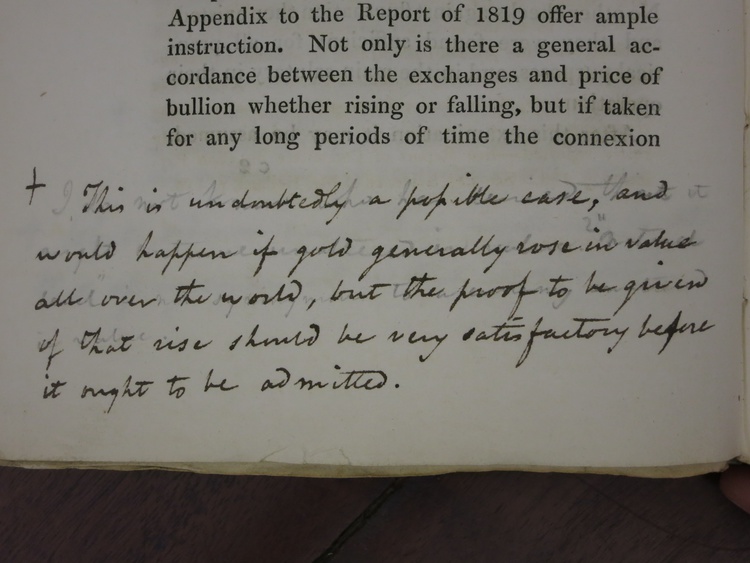 Appendix to the Report of 1819 offer ample
instruction. Not only is there a general ac-
cordance between the exchanges and price of
bullion whether rising or falling, but if taken
for any long periods of time the connexion
+ This is undoubtedly a poſsible case, and
would happen if gold generally rose in value
all over the world, but the proof to be given
of that rise should be very satisfactory before
it ought to be admitted.